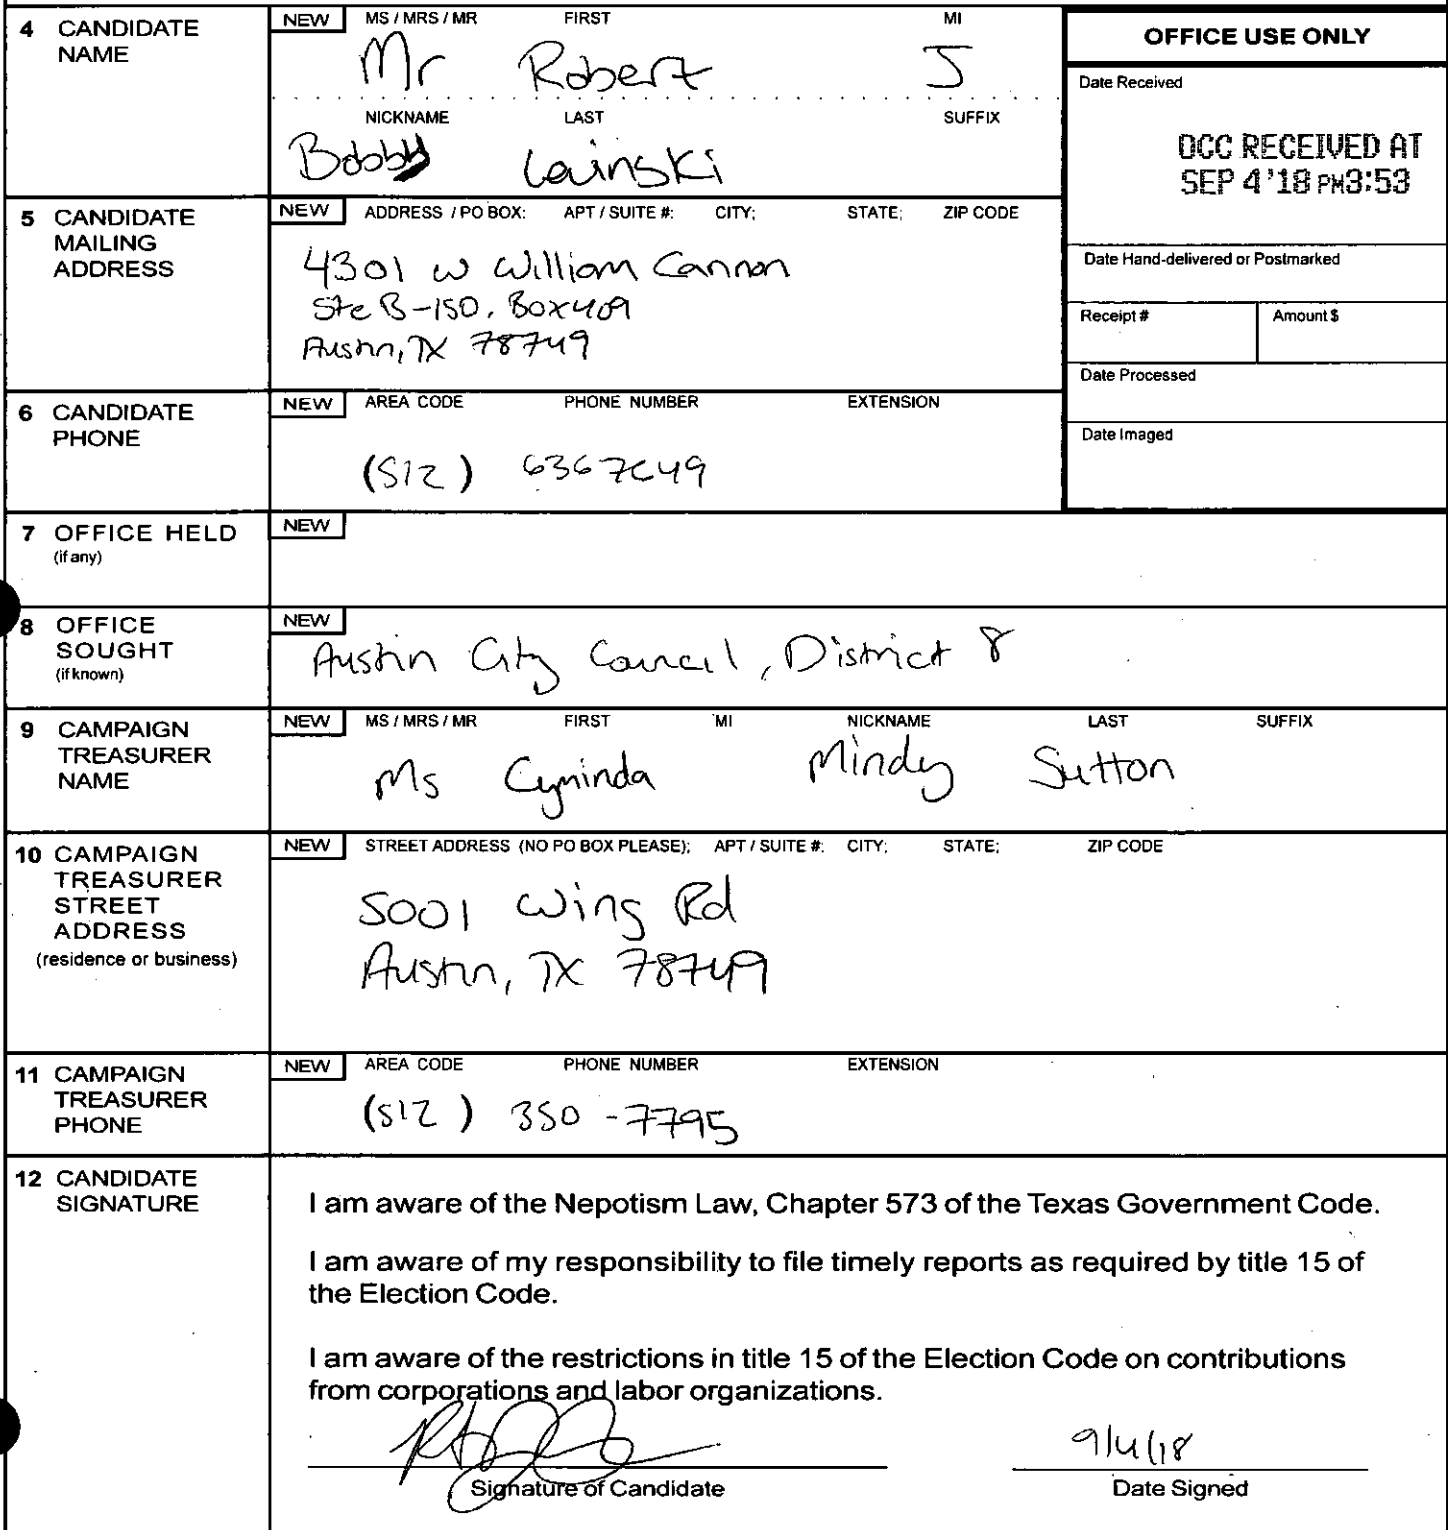 4 CANDIDATE NAME
NEW MS / MRS / MR FIRST MI
Mr Robert J
NICKNAME LAST SUFFIX
Bobby Levinski
OFFICE USE ONLY
Date Received
OCC RECEIVED AT
SEP 4'18 PM3:53
Date Hand-delivered or Postmarked
Receipt # Amount $
Date Processed
Date Imaged
5 CANDIDATE MAILING ADDRESS
NEW ADDRESS / PO BOX; APT / SUITE #; CITY; STATE; ZIP CODE
4301 W William Cannon
Ste B-150, Box 409
Austin, TX 78749
6 CANDIDATE PHONE
NEW AREA CODE PHONE NUMBER EXTENSION
(512) 6367649
7 OFFICE HELD
(if any)
NEW
8 OFFICE SOUGHT
(if known)
NEW
Austin City Council, District 8
9 CAMPAIGN TREASURER NAME
NEW MS / MRS / MR FIRST MI NICKNAME LAST SUFFIX
Ms Cyminda Mindy Sutton
10 CAMPAIGN TREASURER STREET ADDRESS
(residence or business)
NEW STREET ADDRESS (NO PO BOX PLEASE); APT / SUITE #; CITY; STATE; ZIP CODE
5001 Wing Rd
Austin, TX 78749
11 CAMPAIGN TREASURER PHONE
NEW AREA CODE PHONE NUMBER EXTENSION
(512) 350-7795
12 CANDIDATE SIGNATURE
I am aware of the Nepotism Law, Chapter 573 of the Texas Government Code.
I am aware of my responsibility to file timely reports as required by title 15 of
the Election Code.
I am aware of the restrictions in title 15 of the Election Code on contributions
from corporations and labor organizations.
9/4/18
Signature of Candidate Date Signed